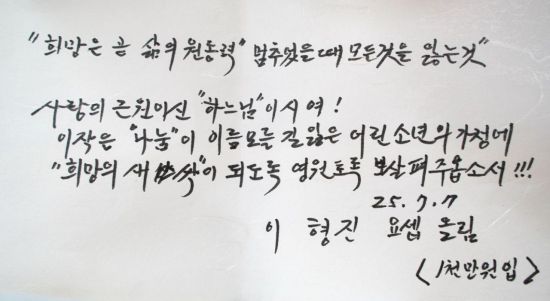 "희망은 곧 삶의 원동력" 멈추었을때 모든것을 잃는것"
사랑의 근원이신 "하느님"이시여!
이작은 "나눔"이 이름모를 길잃은 어린 소년의 가정에
"희망의 새싹"이 되도록 영원토록 보살펴주옵소서!!!
25.7.7
이 형진 요셉 올림
<1천만원입>